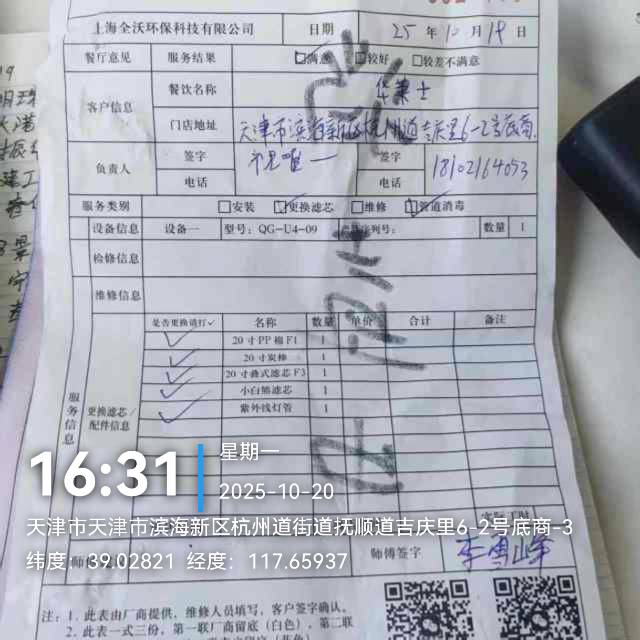 上海全沃环保科技有限公司 日期 25 年 10 月 19 日
餐厅意见 服务结果 满意 较好 较差不满意
客户信息 餐饮名称 华莱士
门店地址 天津市滨海新区杭州道吉庆里6-2号底商
负责人 签字 签字
电话 电话 18102164053
服务类别 安装 更换滤芯 维修 管道消毒
设备信息 设备一 型号: QG-U4-09 序列号: 数量 1
检修信息
维修信息
服务信息
更换滤芯/配件信息
是否更换请打✓ 名称 数量 单价 合计 备注
✓ 20寸PP棉F1 1
✓ 20寸炭棒 1
✓ 20寸叠式滤芯F3 1
✓ 小白熊滤芯 1
✓ 紫外线灯管 1
16:31 星期一
2025-10-20
天津市天津市滨海新区杭州道街道抚顺道吉庆里6-2号底商-3
纬度: 39.02821 经度: 117.65937
师傅签字
注: 1. 此表由厂商提供, 维修人员填写, 客户签字确认。
2. 此表一式三份, 第一联厂商留底(白色), 第二联